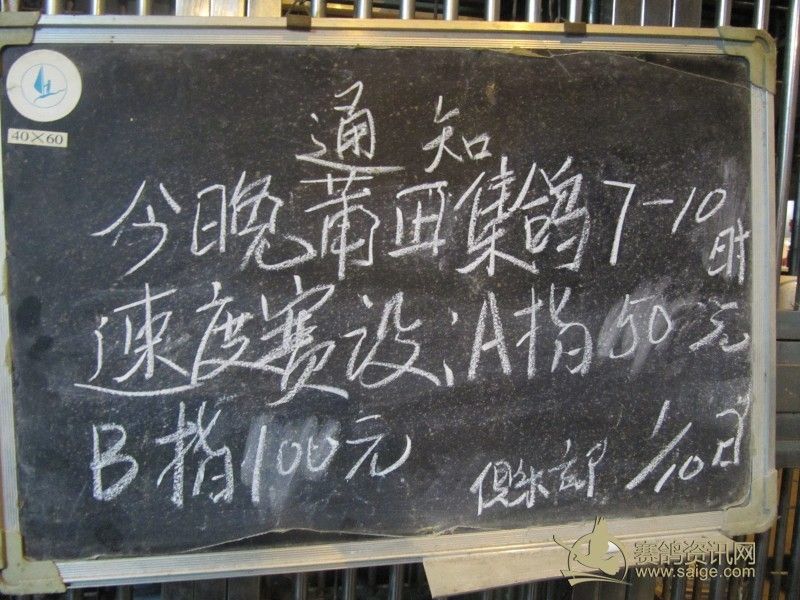 40×60
通知
今晚莆田集鸽7-10时
速度赛设:A指50元
B指100元
俱乐部 1/10日
赛鸽资讯网
www.saige.com